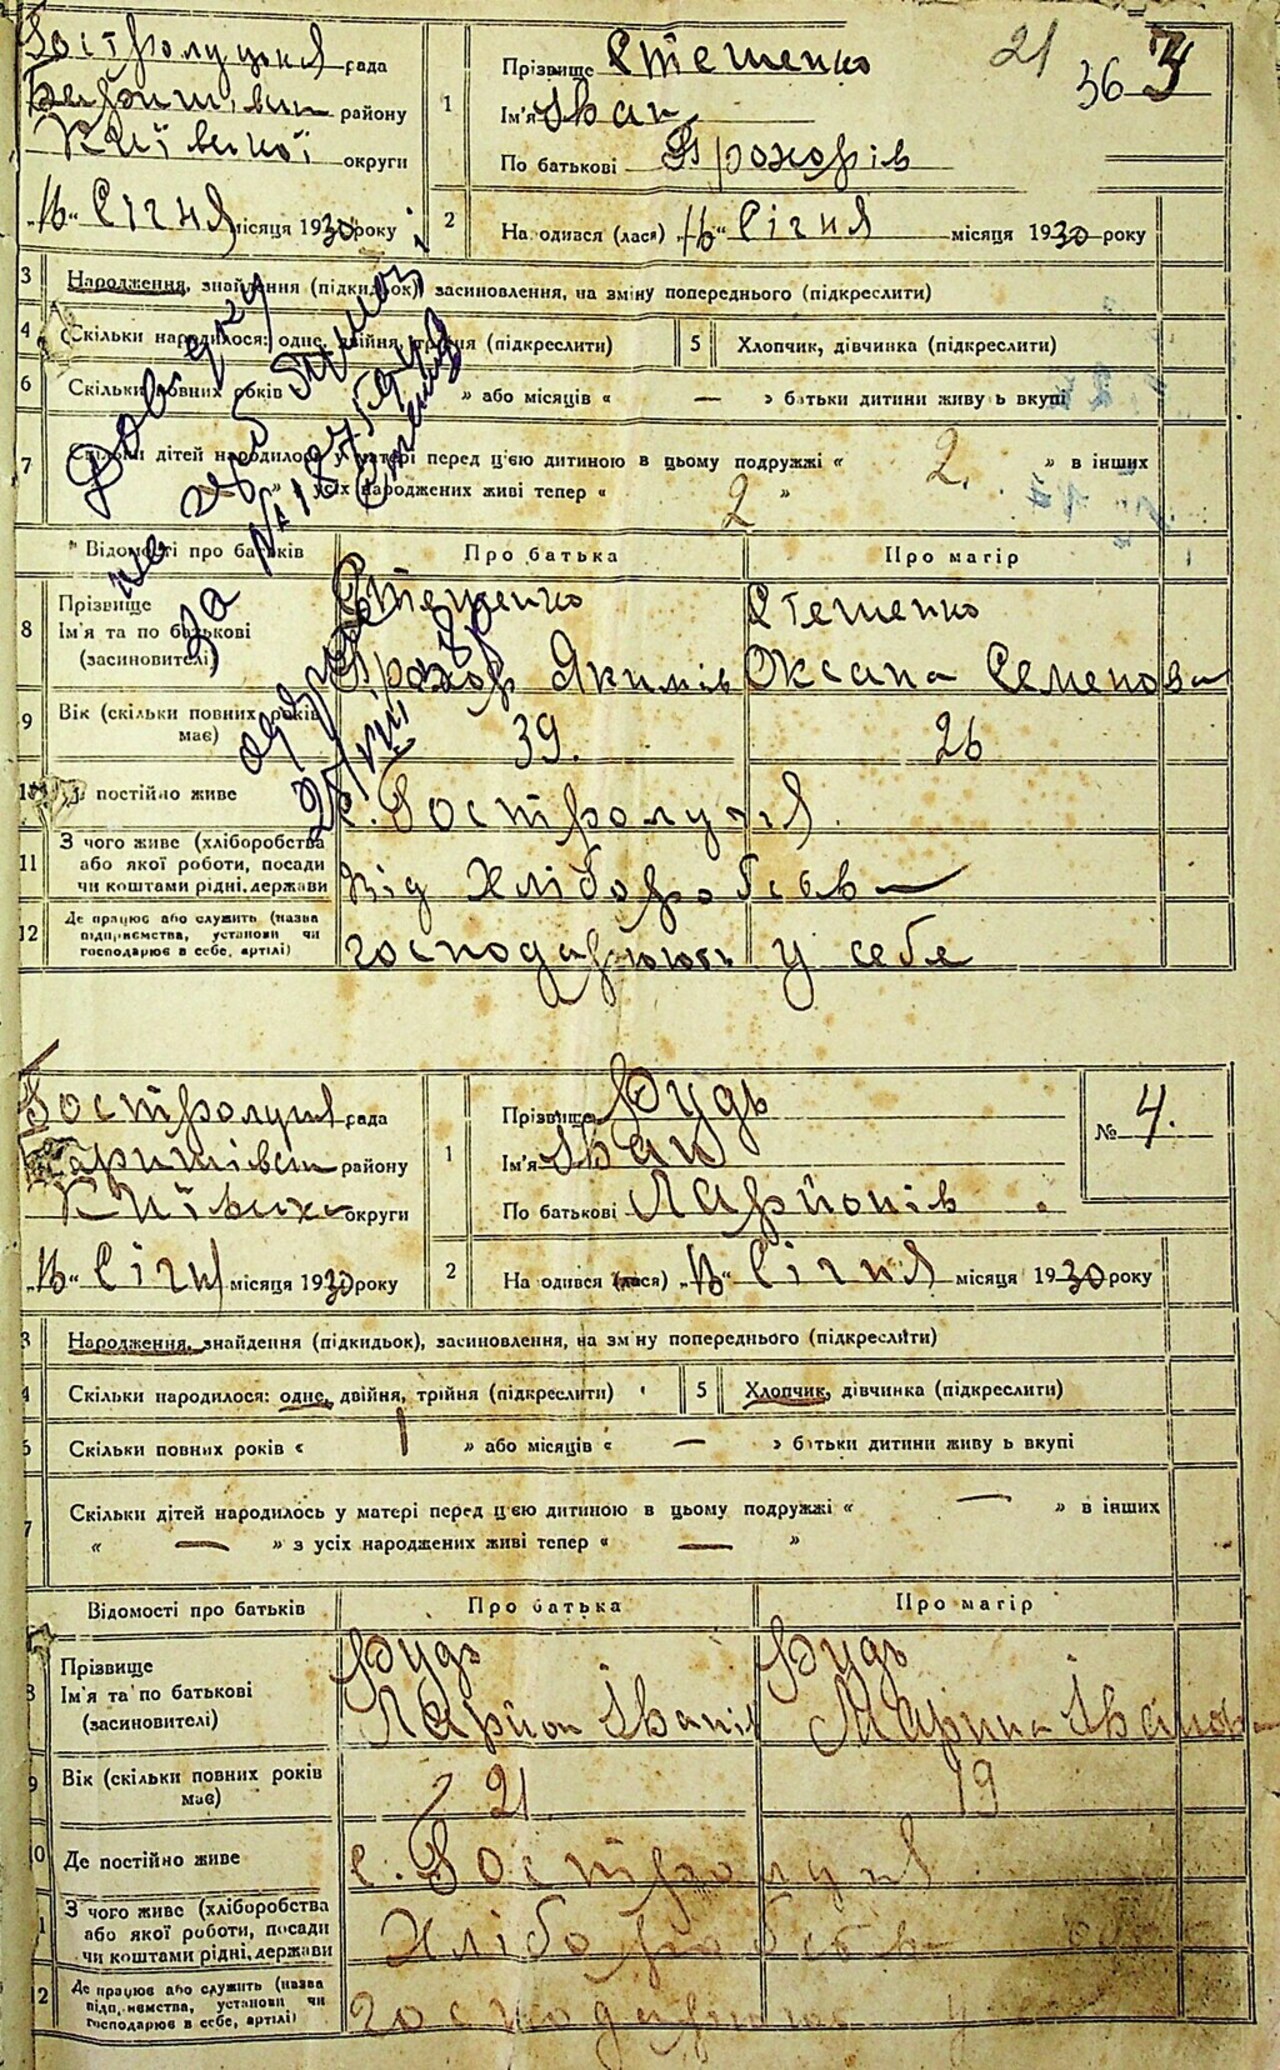 Гостролуцька рада
району
Київської округи
"16" Січня місяця 1930 року
21
36 3
1 Прізвище Стешенко
Ім'я Іван
По батькові Прохорів
2 На одився (лася) "16" Січня місяця 1930 року
3 Народження, знайдення (підкидьок) засиновлення, на зміну попереднього (підкреслити)
4 Скільки народилося: одне, двійня, трійня (підкреслити) 5 Хлопчик, дівчинка (підкреслити)
6 Скільки повних років » або місяців « — » батьки дитини живу ь вкупі
7 Скільки дітей народилось у матері перед ц'єю дитиною в цьому подружжі « 2. » в інших
» усіх народжених живі тепер « 2 »
Довідку
на
За №
Відомості про батьків Про батька Про матір
8 Прізвище
Ім'я та по батькові
(засиновителі)
Стешенко Стешенко
Прохор Якимів Оксана Семенова
9 Вік (скільки повних років має) 39. 26
10 постійно живе с. Гостролуччя
11 З чого живе (хліборобства
або якої роботи, посади
чи коштами рідні, держави
Від Хліборобства
12 Де працює або служить (назва
підприємства, установи чи
господарює в себе, артілі)
господарюють у себе
Гостролуцька рада
району
Київської округи
"16" Січня місяця 1930 року
1 Прізвище Рудь
Ім'я Іван
По батькові Ларйонів
№ 4.
2 На одився (лася) "16" Січня місяця 1930 року
3 Народження, знайдення (підкидьок), засиновлення, на зм ну попереднього (підкреслити)
4 Скільки народилося: одне, двійня, трійня (підкреслити) 5 Хлопчик, дівчинка (підкреслити)
6 Скільки повних років « 1 » або місяців « — » батьки дитини живу ь вкупі
7 Скільки дітей народилось у матері перед ц'єю дитиною в цьому подружжі « — » в інших
« — » з усіх народжених живі тепер « — »
Відомості про батьків Про батька Про матір
8 Прізвище
Ім'я та по батькові
(засиновителі)
Рудь Рудь
Ларйон Іванів Марина Іванова
9 Вік (скільки повних років має) 21 19
10 Де постійно живе с. Гостролуччя
11 З чого живе (хліборобства
або якої роботи, посади
чи коштами рідні, держави
Хліборобства
12 Де працює або служить (назва
підп, иємства, установи чи
господарює в себе, артілі)
господарюють у